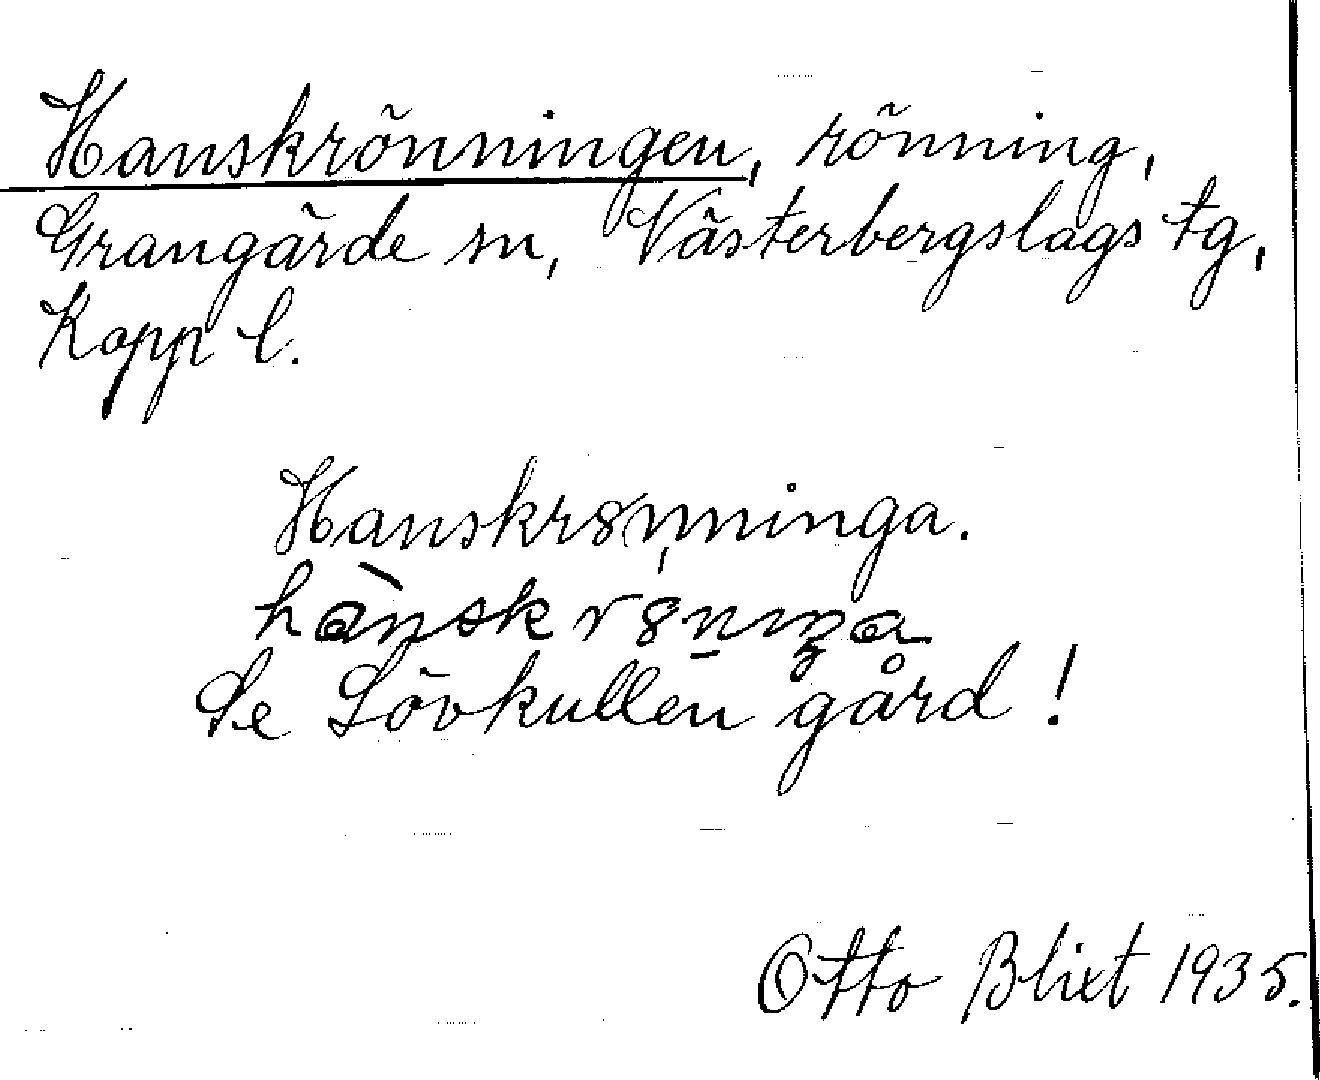 Hanskrönningen, rönning,
Grangärde sn, Västerbergslags tg,
Kopp l.
Hanskrönninga.
Se Lövkullen gård!
Otto Blixt 1935.